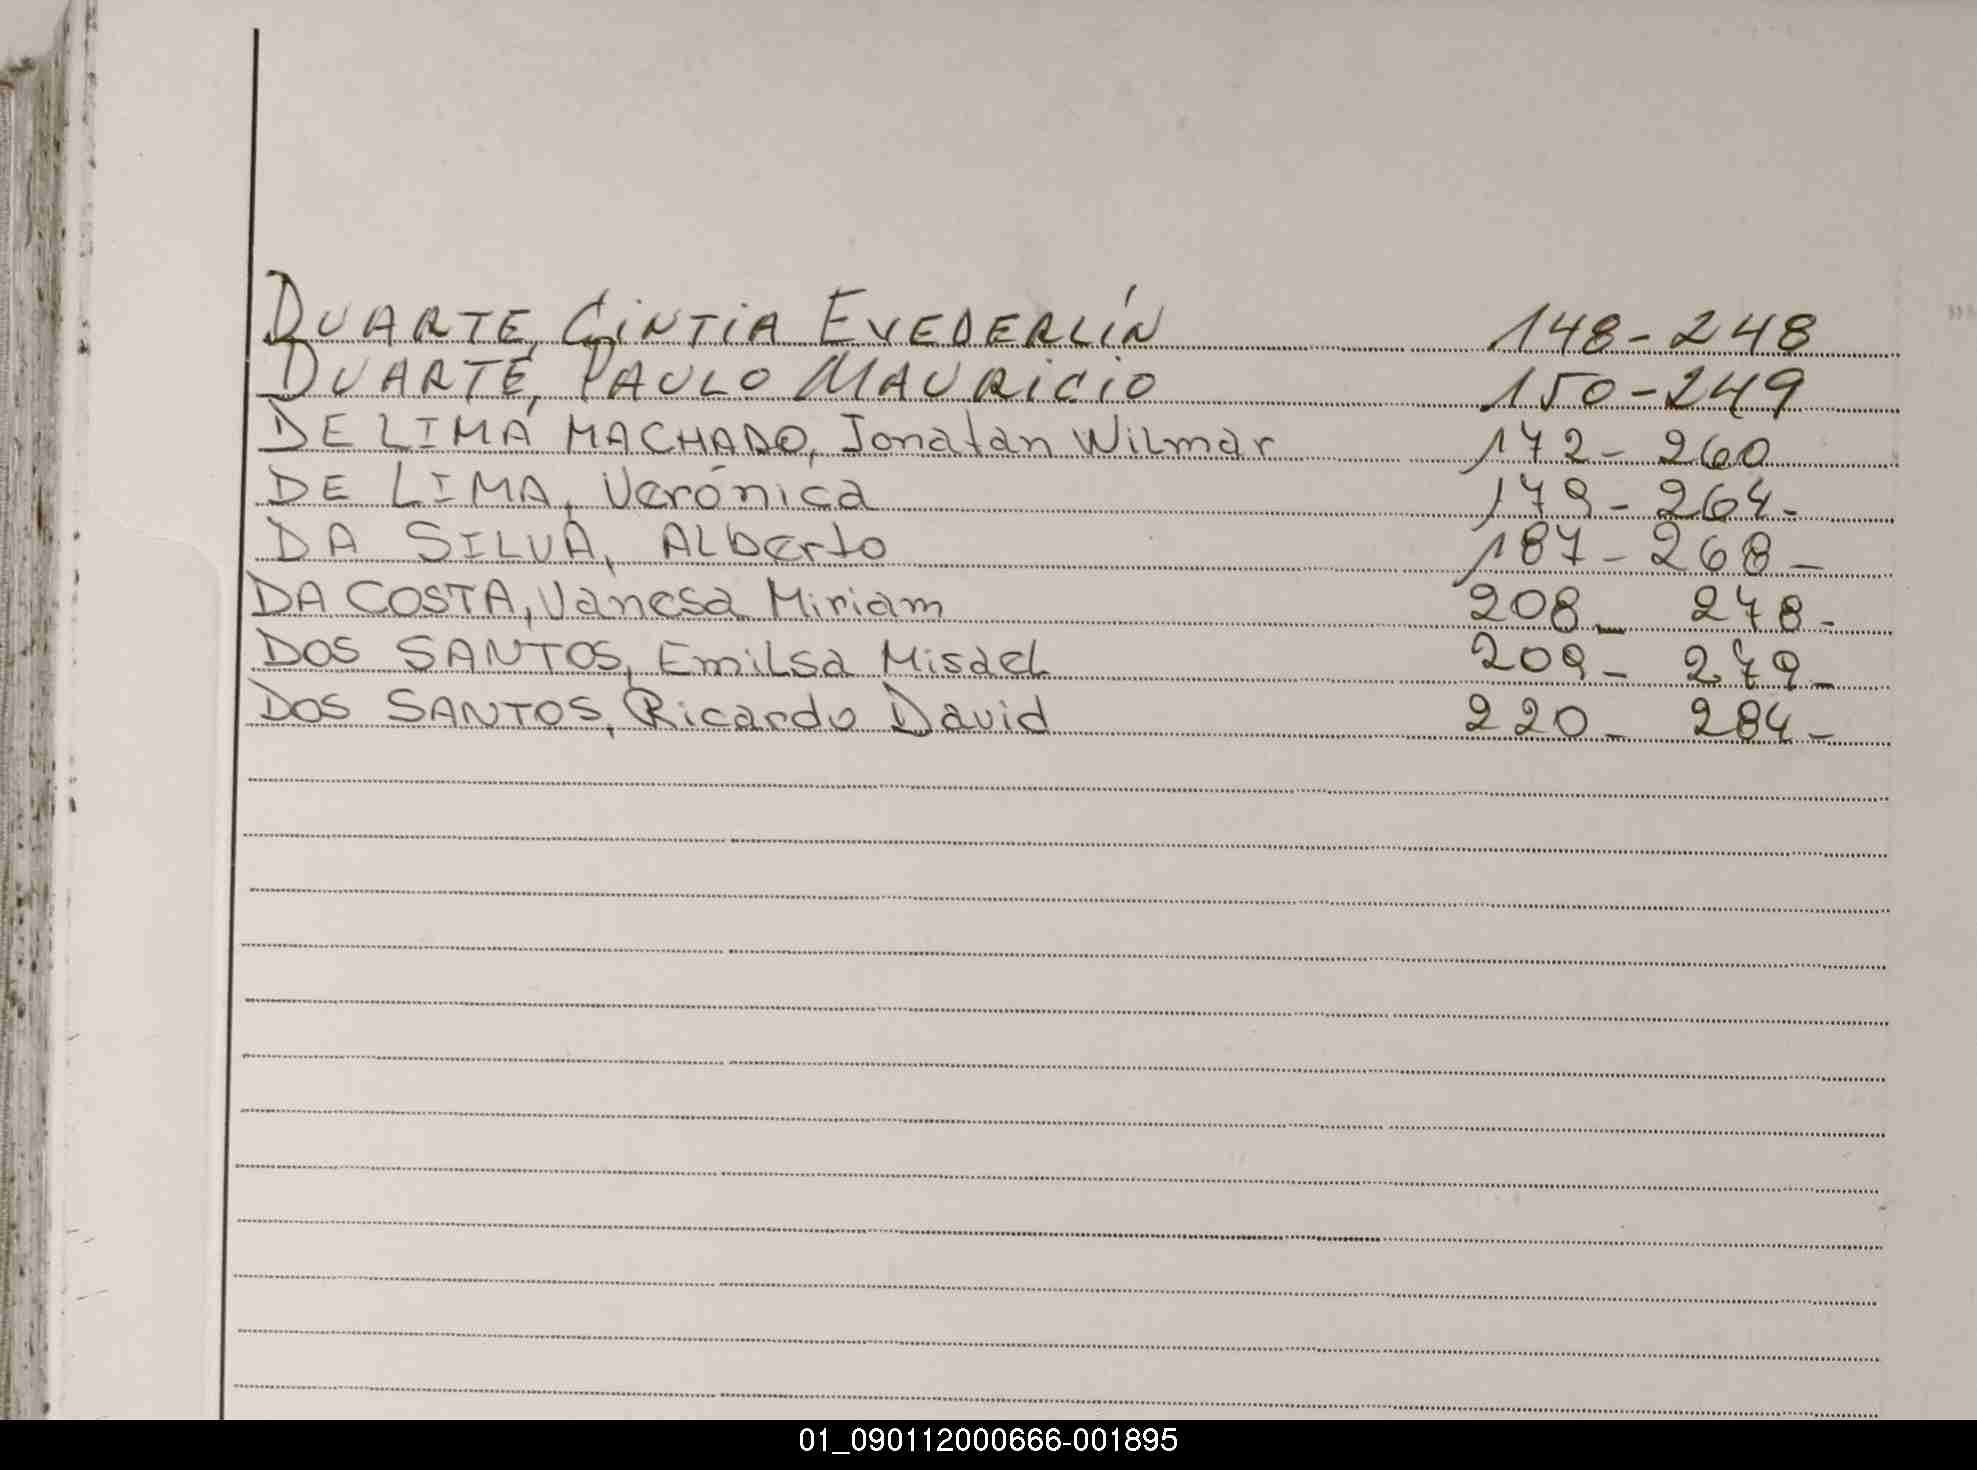 DUARTE, CiNTiA EVEDERLÍN 148-248
DUARTE, PAULO MAURiCiO 150-249
DE LIMA MACHADO, Jonatan Wilmar 172-260
DE LIMA, Verónica 179-264-
DA SILVA, ALberto 187-268-
DA COSTA, Vanesa Miriam 208-278-
DOS SANTOS, Emilsa Misael 209-279-
DOS SANTOS, Ricardo David 220-284-
01_090112000666-001895